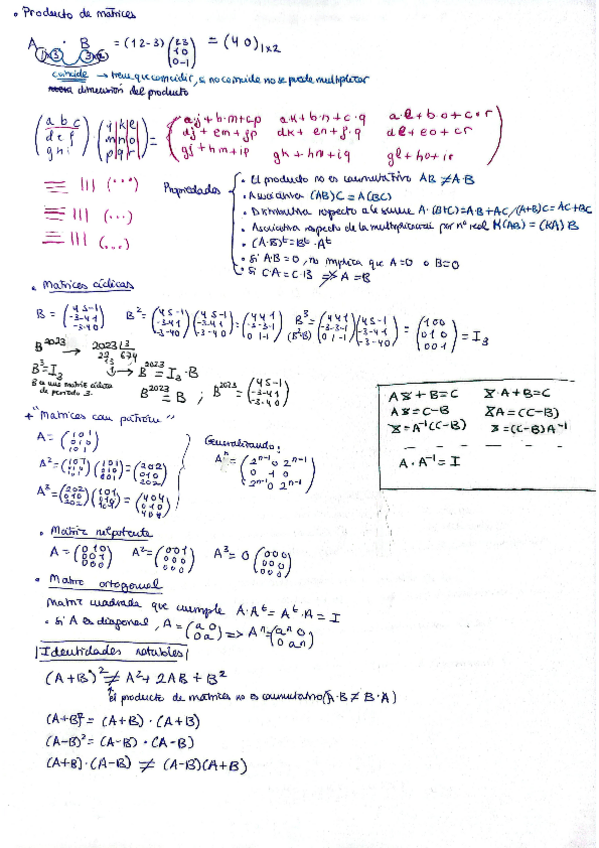 • Producto de matrices
A · B = (1 2 -3) (2 3 / 1 0 / 0 -1) = (4 0)1x2
1x3 3x2
coincide → tiene que coincidir, si no coincide no se puede multiplicar
dimensión del producto
(a b c / d e f / g h i) · (j k l / m n o / p q r) = (a·j + b·m + cp a·k + b·n + c·q a·l + b·o + c·r / dj + em + fp dk + en + f·q dl + eo + cr / gj + hm + ip gk + hn + iq gl + ho + ir)
Propiedades
• El producto no es conmutativo AB ≠ A·B
• Asociativa (AB)C = A(BC)
• Distributiva respecto a la suma A·(B+C) = A·B + AC / (A+B)C = AC + BC
• Asociativa respecto de la multiplicación por nº real K(AB) = (KA)B
• (A·B)^t = B^t · A^t
• Si A·B = 0, no implica que A=0 o B=0
• Si C·A = C·B ≠> A = B
• Matrices cíclicas
B = (4 5 -1 / -3 -4 1 / -3 -4 0) B² = (4 5 -1 / -3 -4 1 / -3 -4 0) (4 5 -1 / -3 -4 1 / -3 -4 0) = (4 4 1 / -3 -3 -1 / 0 1 -1) B³ (B²·B) = (4 4 1 / -3 -3 -1 / 0 1 -1) (4 5 -1 / -3 -4 1 / -3 -4 0) = (1 0 0 / 0 1 0 / 0 0 1) = I3
B^2023 → 2023 |3
22 674
B³ = I3 → B^2023 = I3 · B
B es una matriz cíclica de periodo 3.
B^2023 = B ; B^2023 = (4 5 -1 / -3 -4 1 / -3 -4 0)
AX + B = C X·A + B = C
AX = C - B XA = (C - B)
X = A⁻¹(C - B) X = (C - B)A⁻¹
A · A⁻¹ = I
+ "Matrices con patrón"
A = (1 0 1 / 0 1 0 / 1 0 1)
A² = (1 0 1 / 0 1 0 / 1 0 1) (1 0 1 / 0 1 0 / 1 0 1) = (2 0 2 / 0 1 0 / 2 0 2)
A³ = (2 0 2 / 0 1 0 / 2 0 2) (1 0 1 / 0 1 0 / 1 0 1) = (4 0 4 / 0 1 0 / 4 0 4)
Generalizando:
Aⁿ = (2ⁿ⁻¹ 0 2ⁿ⁻¹ / 0 1 0 / 2ⁿ⁻¹ 0 2ⁿ⁻¹)
• Matriz nilpotente
A = (0 1 0 / 0 0 1 / 0 0 0) A² = (0 0 1 / 0 0 0 / 0 0 0) A³ = 0 (0 0 0 / 0 0 0 / 0 0 0)
• Matriz ortogonal
Matriz cuadrada que cumple A·A^t = A^t·A = I
• Si A es diagonal, A = (a 0 / 0 a) => Aⁿ = (aⁿ 0 / 0 aⁿ)
Identidades notables
(A + B)² ≠ A² + 2AB + B²
El producto de matrices no es conmutativo (A·B ≠ B·A)
(A+B)² = (A+B) · (A+B)
(A-B)² = (A-B) · (A-B)
(A+B) · (A-B) ≠ (A-B)(A+B)